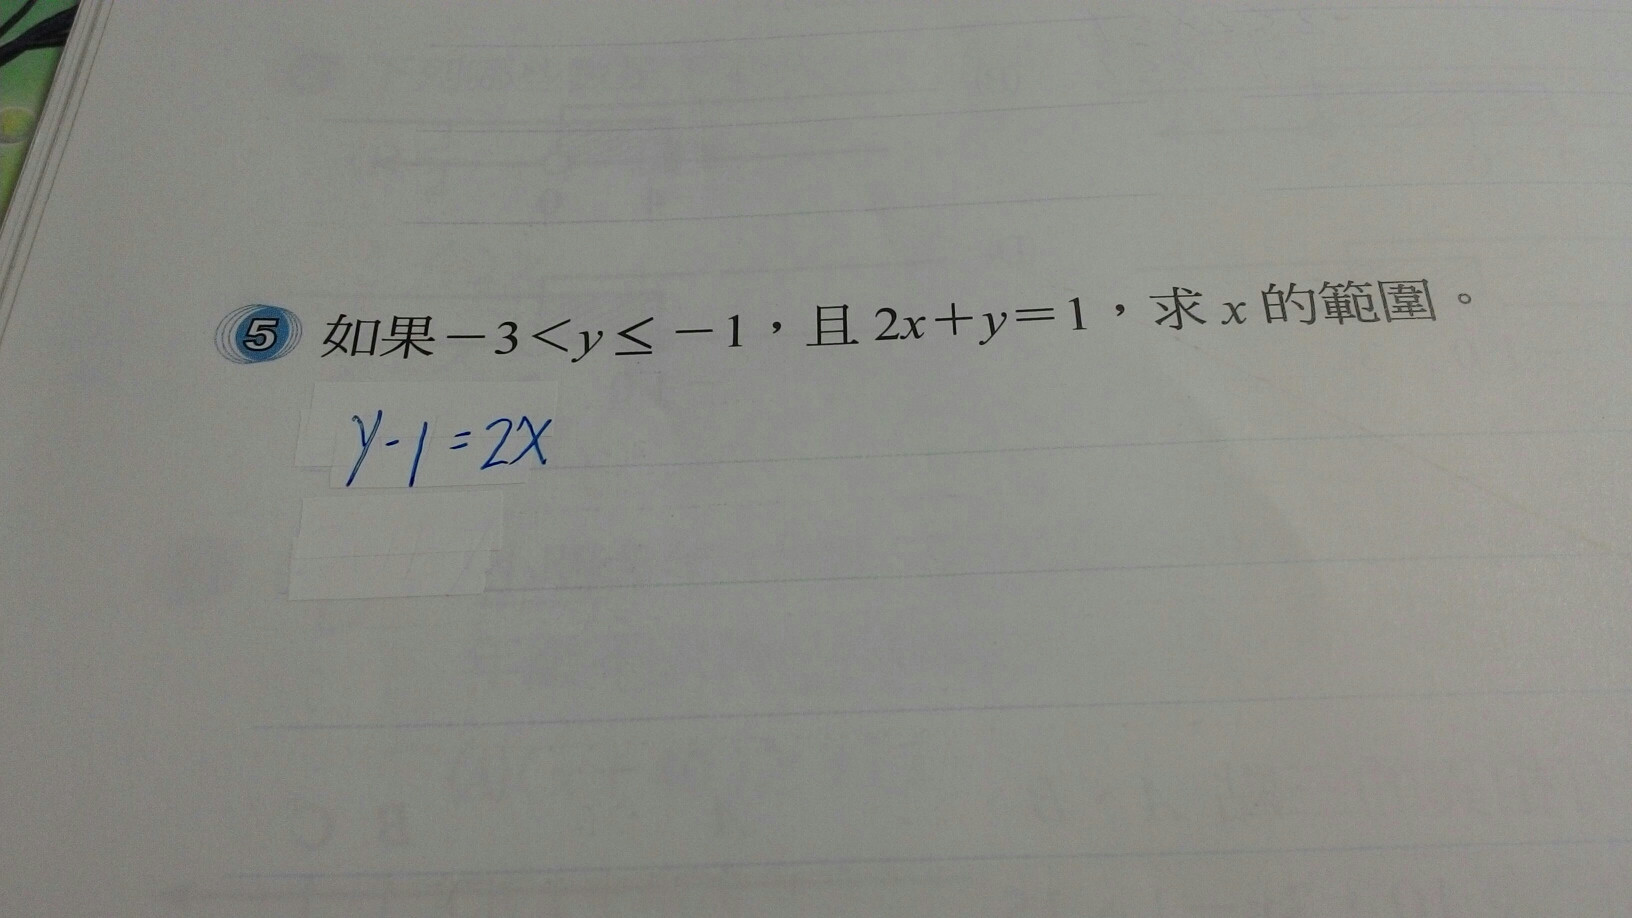 5 如果－3＜y≤－1，且 2x＋y＝1，求 x 的範圍。
y-1=2x